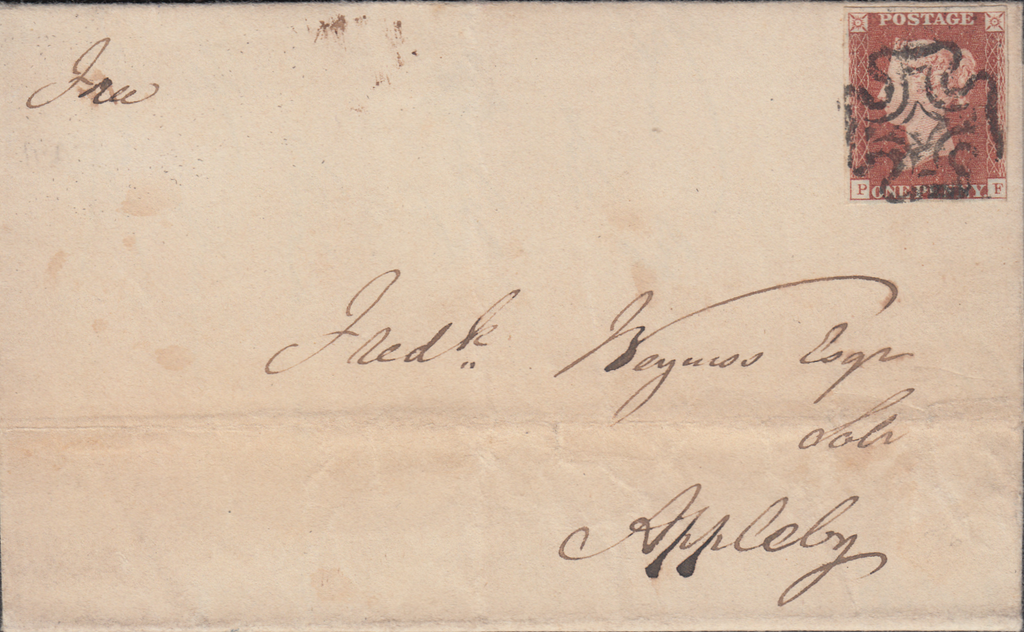 POSTAGE
Free
P ONE PENNY F
Fredk Weymss Esqr
Solr
Appleby